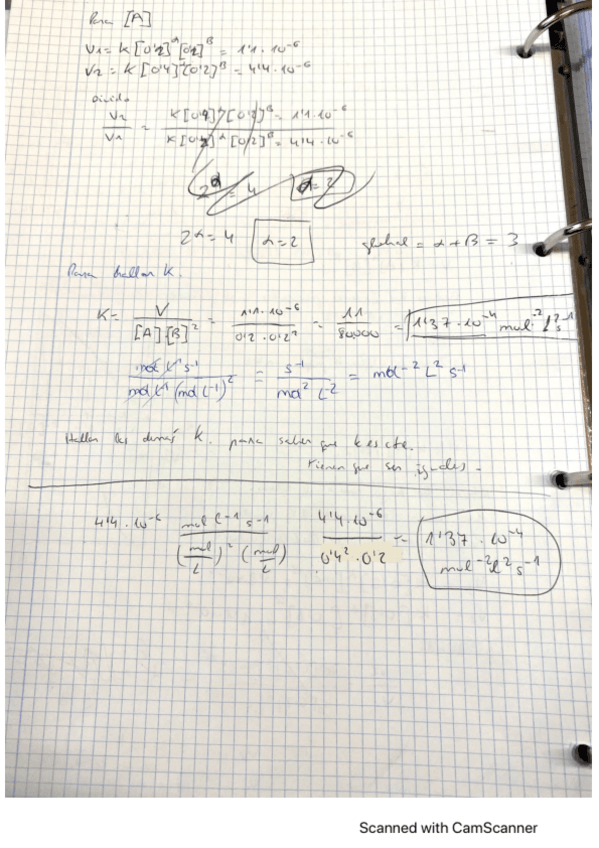 Para [A]
V1 = K [0'2]^α [0'2]^β = 1'1 · 10^-6
V2 = K [0'4]^α [0'2]^β = 4'4 · 10^-6
Divido
V2/V1 = K [0'4]^α [0'2]^β = 1'1 · 10^-6 / K [0'2]^α [0'2]^β = 4'4 · 10^-6
2^α = 4 α = 2
2^α = 4 α = 2 global = α + β = 3
Para hallar K.
K = V/[A][B]^2 = 1'1 · 10^-6/0'2 · 0'2^2 = 11/80.000 = 1'37 · 10^-4 mol^-2 l^2 s^-1
mol l^-1 s^-1/mol l^-1 (mol L^-1)^2 = s^-1/mol^2 L^-2 = mol^-2 L^2 s^-1
Hallar las demás K. para saber que k es cte.
Tienen que ser iguales.
4'4 · 10^-6 mol l^-1 s^-1/(mol/L)^2 (mol/L) 4'4 · 10^-6/0'4^2 · 0'2 = 1'37 · 10^-4 mol^-2 l^2 s^-1
Scanned with CamScanner